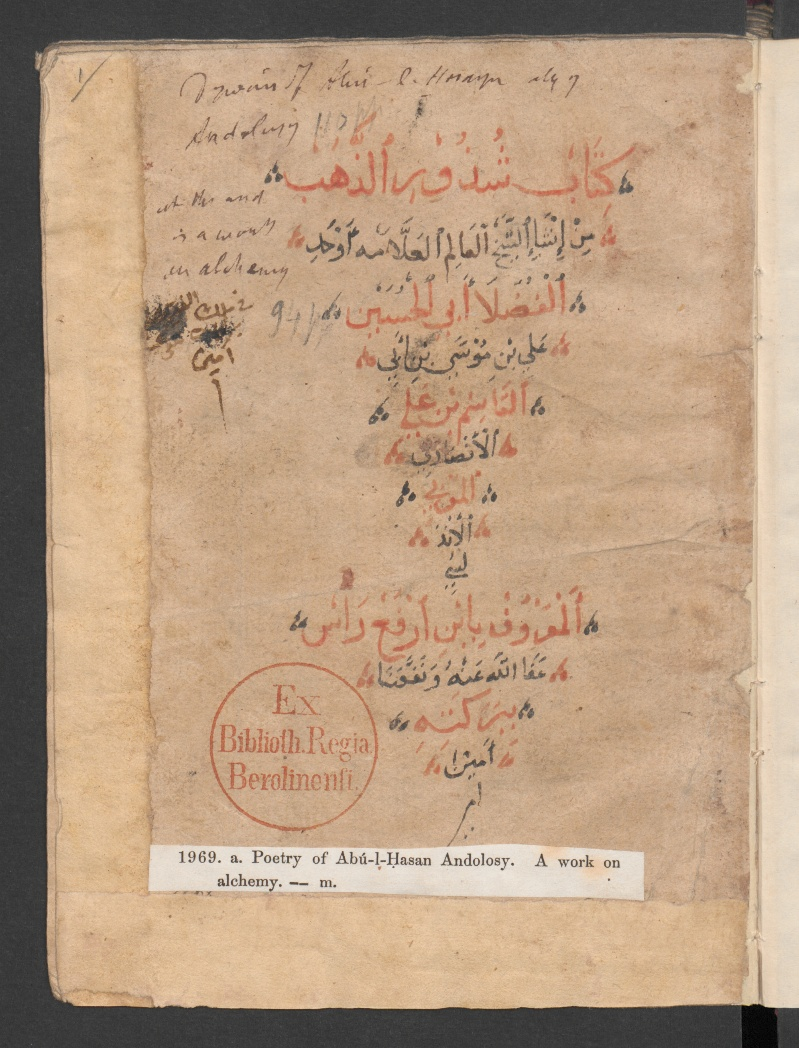 Dywán of Abú-l-Hosayn aly
Andolosy
كِتَابُ شُذُورِ الذَّهَب
at the end
is a work
on alchemy
مِنْ إِنْشَاءِ الشَّيْخِ الْعَالِمِ الْعَلَّامَه أَوْحَدِ
الْفُضَلَا أَبِي الْحُسَيْنِ
عَلِي بْنِ مُوسَى بْنِ أَبِي
الْقَاسِمِ بْنِ عَلِي
الْأَنْصَارِي
المغربي
الْأَنْدَ
لسي
الْمَعْرُوفُ بِابْنِ أَرْفَعْ رَأْس
عَفَا اللَّه عَنْهُ وَنَفَعَنَا
بِبَرَكَتِهِ
أمين
أمين
Ex
Biblioth. Regia
Berolinensi.
1969. a. Poetry of Abú-l-Ḥasan Andolosy. A work on
alchemy. — m.